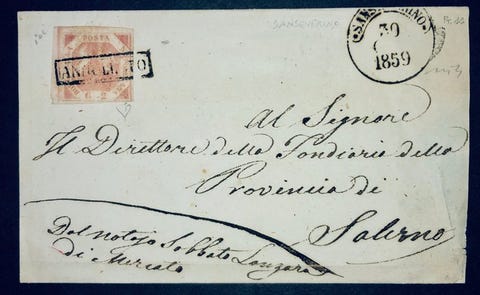 SANSEVERINO
POSTA
ANNULLATO
SANSEVERINO
30
1859
Al Signore
Il Direttore della Fondiaria della
Provincia di
Salerno
Dal notajo Sabbato Longara
di Mercato